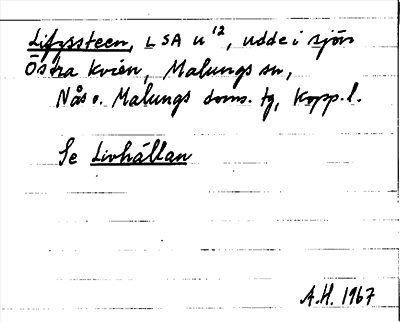 Lifzssteen, LSA U¹², udde i sjön
Östra Kvien, Malungs sn,
Nås o. Malungs doms. tg, Kopp. l.
Se Livhällan
A.H. 1967